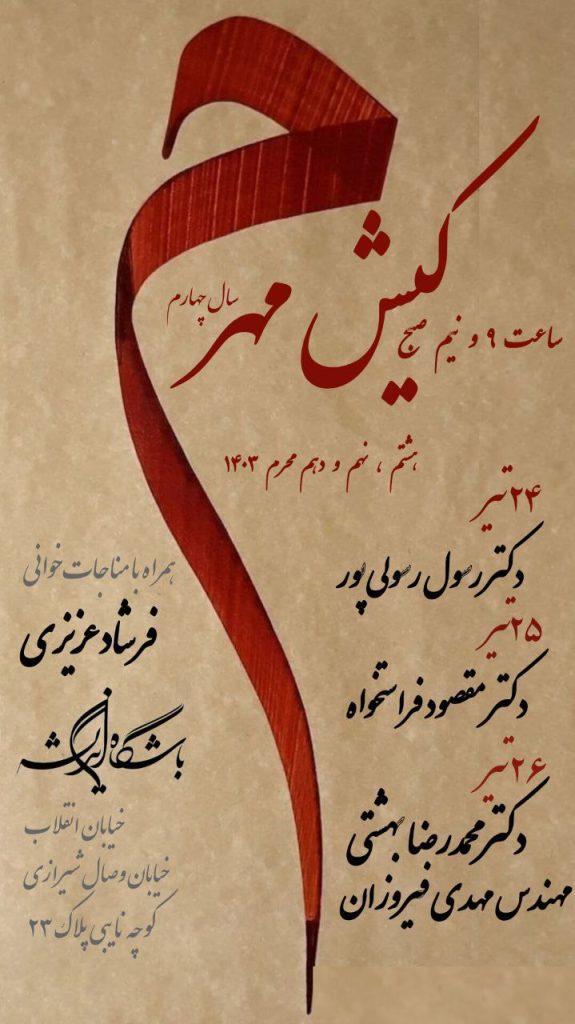 کیش مهر
سال چهارم
ساعت ۹ و نیم صبح
هشتم ، نهم و دهم محرم ۱۴۰۳
۲۴ تیر
دکتر رسول رسولی پور
۲۵ تیر
دکتر مقصود فراستخواه
۲۶ تیر
دکتر محمدرضا بهشتی
مهندس مهدی فیروزان
همراه با مناجات خوانی
فرشاد عزیزی
باشگاه اندیشه
خیابان انقلاب
خیابان وصال شیرازی
کوچه نایبی پلاک ۲۳